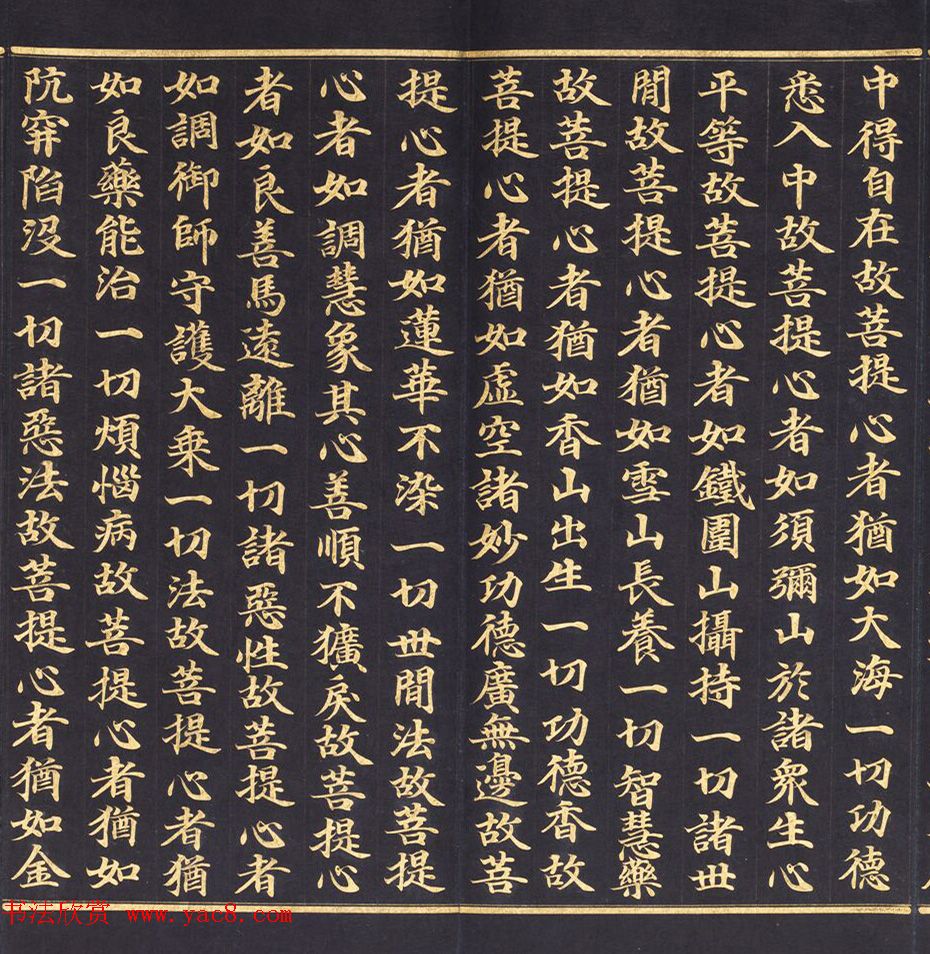 中得自在故菩提心者猶如大海一切功德
悉入中故菩提心者如須彌山於諸衆生心
平等故菩提心者如鐵圍山攝持一切諸世
閒故菩提心者猶如雪山長養一切智慧藥
故菩提心者猶如香山出生一切功德香故
菩提心者猶如虛空諸妙功德廣無邊故菩
提心者猶如蓮華不染一切世間法故菩提
心者如調慧象其心善順不獷戾故菩提心
者如良善馬遠離一切諸惡性故菩提心者
如調御師守護大乗一切法故菩提心者猶
如良藥能治一切煩惱病故菩提心者猶如
阬穽陷沒一切諸惡法故菩提心者猶如金
书法欣赏 www.yac8.com